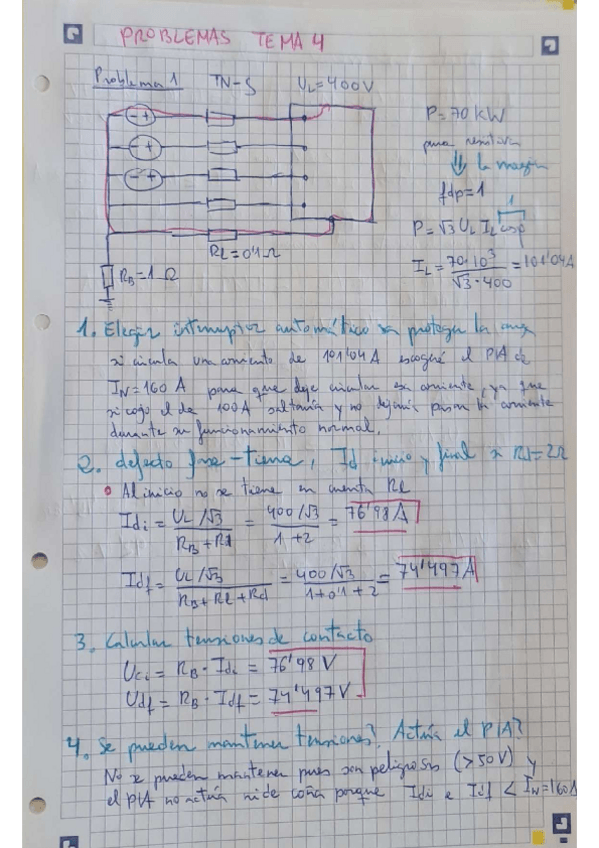 PROBLEMAS TEMA 4
Problema 1 TN-S UL=400V
P=70 kW
pura resistiva
la mayor
fdp=1
1
P=√3 UL IL cosφ
IL= 70·10³ / √3·400 = 101'04A
RL=0'1Ω
RB=1 Ω
1. Elegir interruptor automático para proteger la carga
si circula una corriente de 101'04 A escogeré el PIA de
IN=160 A para que deje circular esa corriente, ya que
si cojo el de 100A saltaría y no dejaría pasar la corriente
durante su funcionamiento normal.
2. defecto fase-tierra, Id inicio y final si Rd=2Ω
Al inicio no se tiene en cuenta RL
Idi = UL/√3 / RB+Rd = 400/√3 / 1+2 = 76'98 A
Idf = UL/√3 / RB+RL+Rd = 400/√3 / 1+0'1+2 = 74'497 A
3. Calcular tensiones de contacto
Uci = RB · Idi = 76'98 V
Udf = RB · Idf = 74'497 V
4. Se pueden mantener tensiones? Actúa el PIA?
No se pueden mantener pues son peligrosas (>50V) y
el PIA no actúa ni de coña porque Idi e Idf < IN=160A